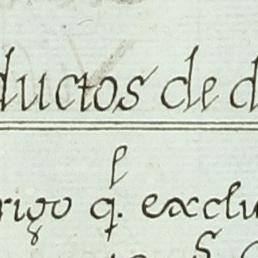 ductos de d
rigo q. exclu